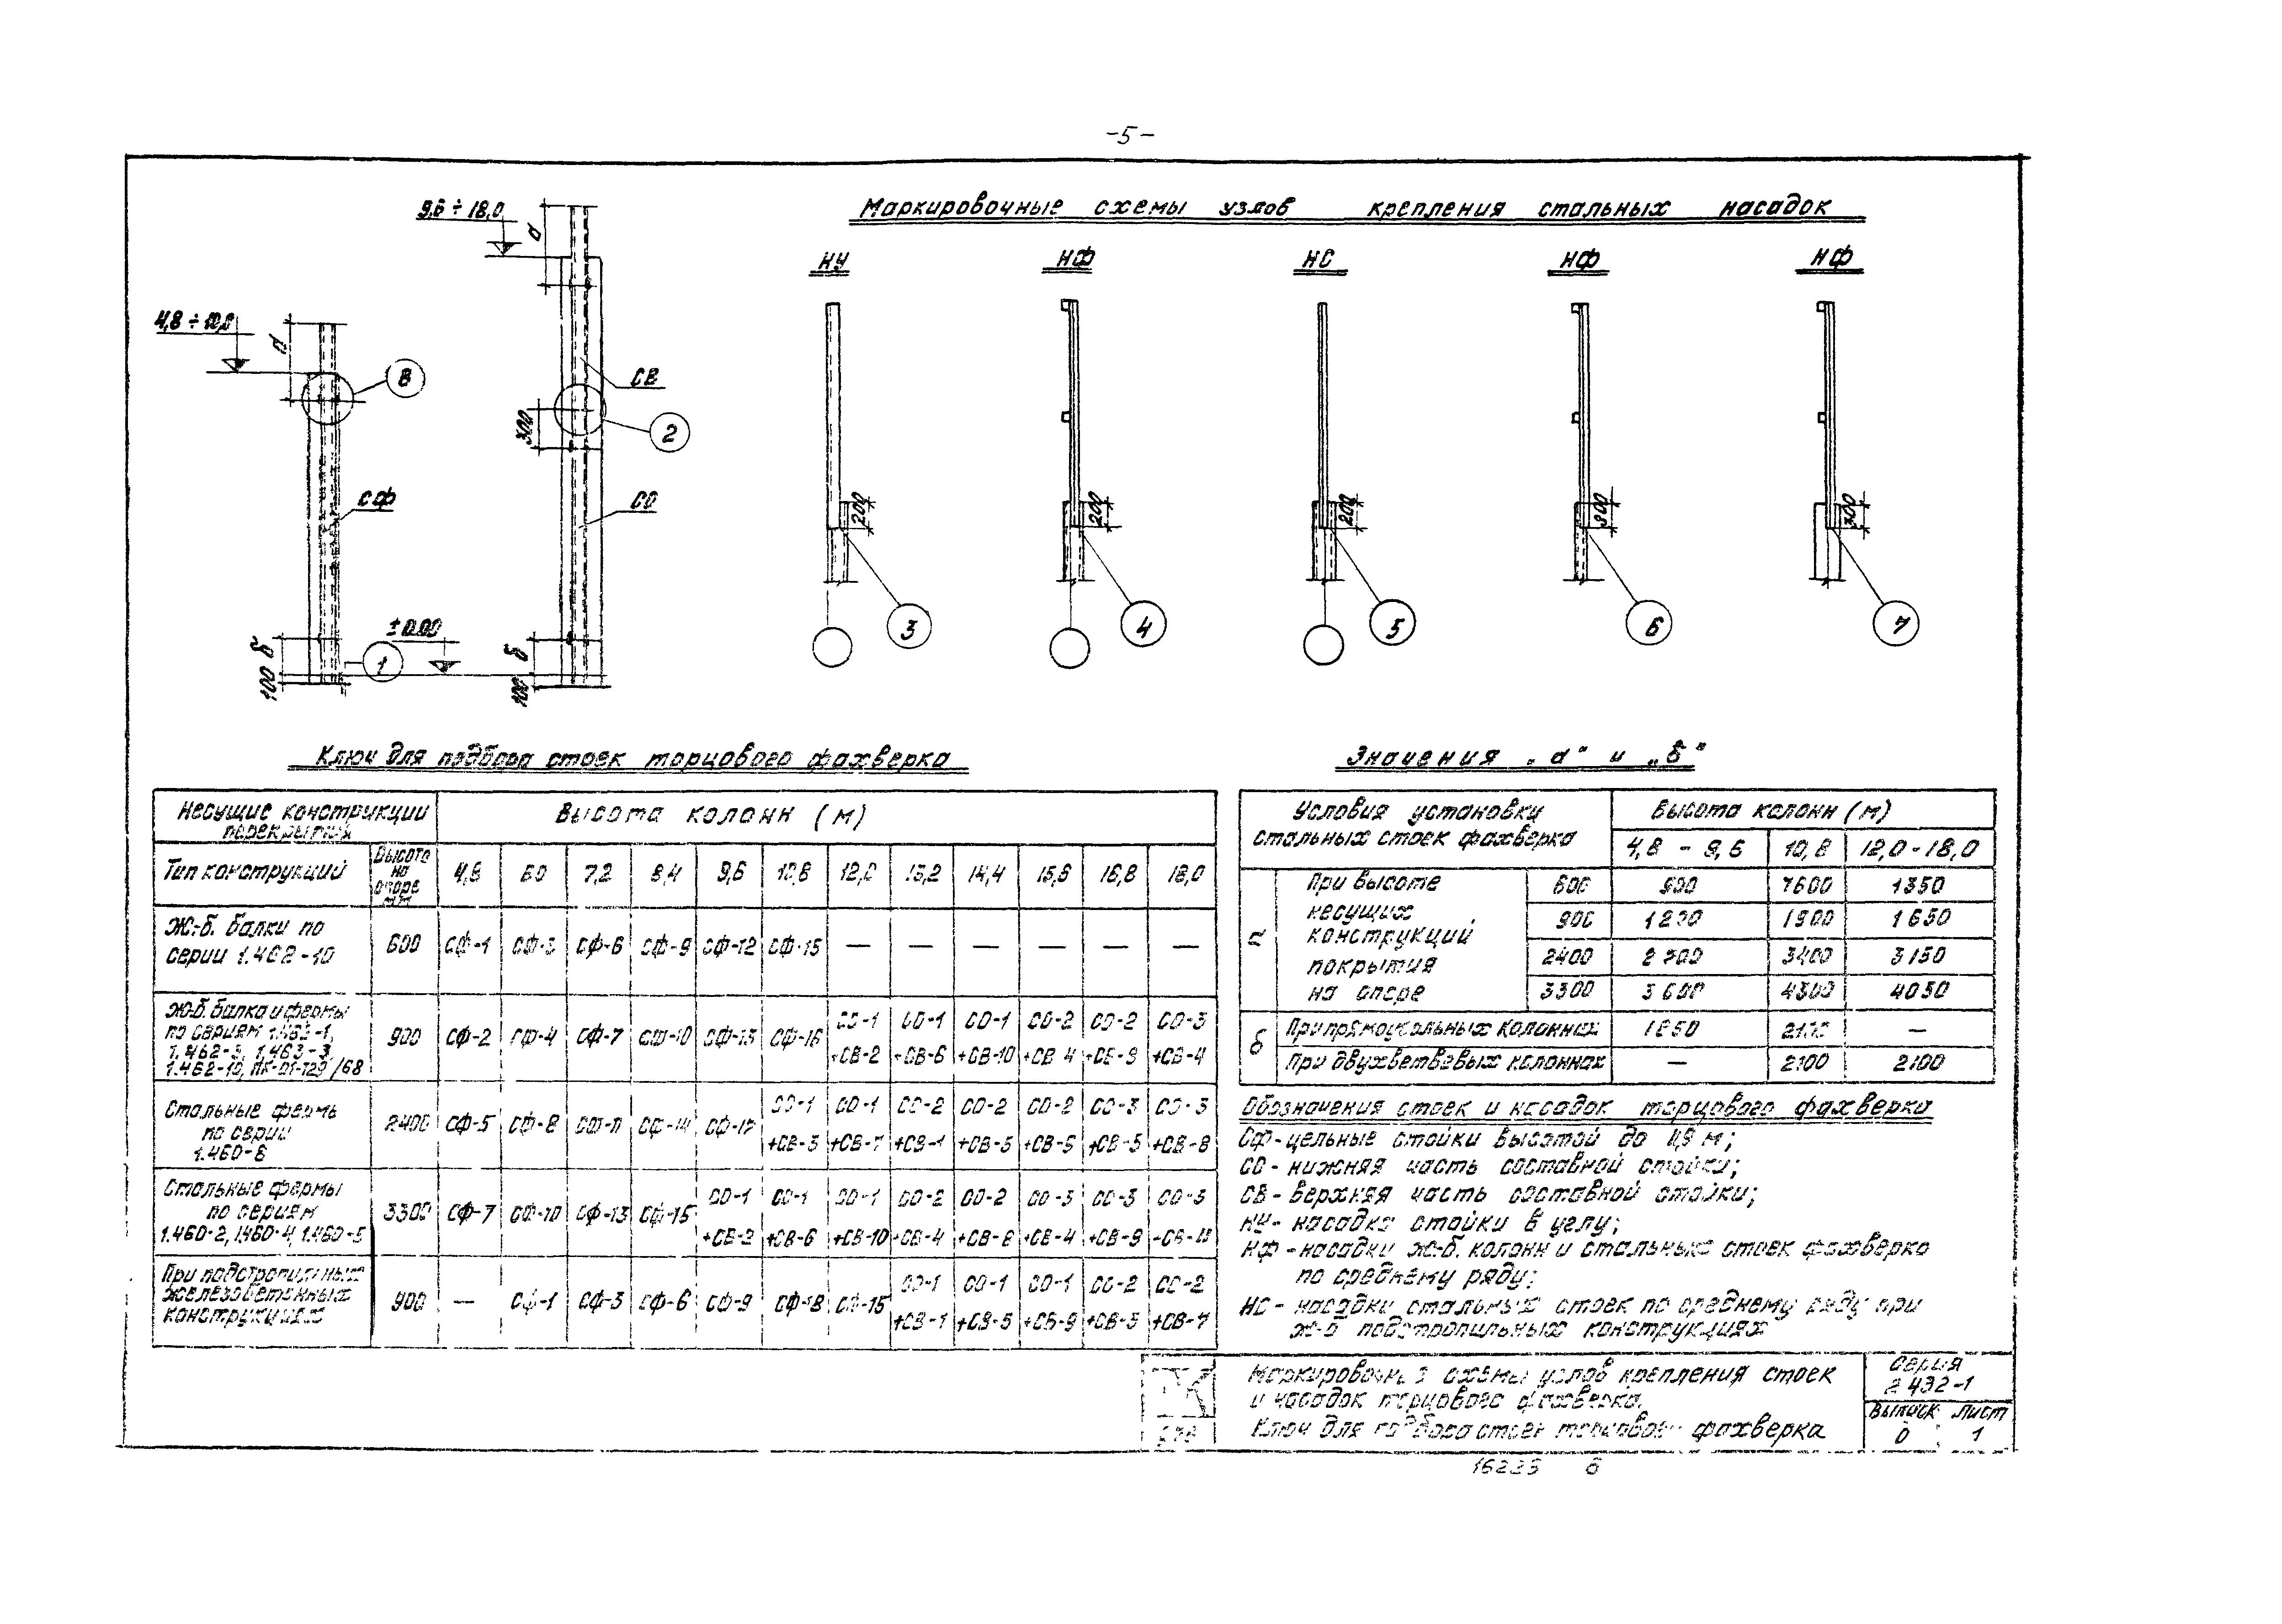 -5-
Маркировочные схемы узлов крепления стальных насадок
9,6 ÷ 18,0
а
НУ
НФ
НС
НФ
НФ
а
8
СВ
300
2
СФ
СО
200
200
200
300
300
3
4
5
6
7
± 0.00
б
100
1
б
100
Ключ для подбора стоек торцового фахверка
Несущие конструкции перекрытия
Высота колонн (м)
Тип конструкций
Высота на опоре мм
4,8 6,0 7,2 8,4 9,6 10,8 12,0 13,2 14,4 15,6 16,8 18,0
Ж.-б. балки по
серии 1.462-10
600 СФ-1 СФ-3 СФ-6 СФ-9 СФ-12 СФ-15 — — — — — —
Ж.-б. балки и фермы
по сериям
900 СФ-2 СФ-4 СФ-7 СФ-10 СФ-13 СФ-16
СО-1 СО-1 СО-1 СО-2 СО-2 СО-3
+СВ-2 +СВ-6 +СВ-10 +СВ-4 +СВ-4
Стальные фермы
по серии
1.460-6
2400 СФ-5 СФ-8 СФ-11 СФ-14 СФ-17
СО-1 СО-1 СО-2 СО-2 СО-2 СО-3 СО-3
+СВ-3 +СВ-7 +СВ-1 +СВ-5 +СВ-8
Стальные фермы
по сериям
1.460-2, 1.460-4, 1.460-5
3300 СФ-7 СФ-10 СФ-13 СФ-15
СО-1 СО-1 СО-1 СО-2 СО-2 СО-3 СО-3 СО-3
+СВ-2 +СВ-6 +СВ-10 +СВ-4 +СВ-8 +СВ-4 +СВ-11
При подстропильных
железобетонных
конструкциях
900 — СФ-1 СФ-3 СФ-6 СФ-9 СФ-18 СФ-15
СО-1 СО-1 СО-1 СО-2 СО-2
+СВ-1 +СВ-5 +СВ-9 +СВ-7
Значения „а" и „б"
Условия установки
стальных стоек фахверка
Высота колонн (м)
4,8 - 9,6 10,8 12,0 - 18,0
а
При высоте
несущих
конструкций
покрытия
на опоре
600 900 1350
900 1200 1900 1650
2400 2700 3400 3150
3300 3600 4300 4050
б
При прямоугольных колоннах 1850 2100 —
При двухветвевых колоннах — 2100 2100
Обозначения стоек и насадок торцового фахверка
СФ-цельные стойки высотой до м;
СО - нижняя часть составной стойки;
СВ - верхняя часть составной стойки;
НУ - насадка стойки в углу;
НФ - насадки ж.-б. колонн и стальных стоек фахверка
по среднему ряду;
НС - насадки стальных стоек по среднему ряду при
ж-б подстропильных конструкциях
схемы узлов крепления стоек
и насадок торцового фахверка.
Ключ для подбора стоек торцового фахверка
Серия
2.432-1
Выпуск Лист
0 1